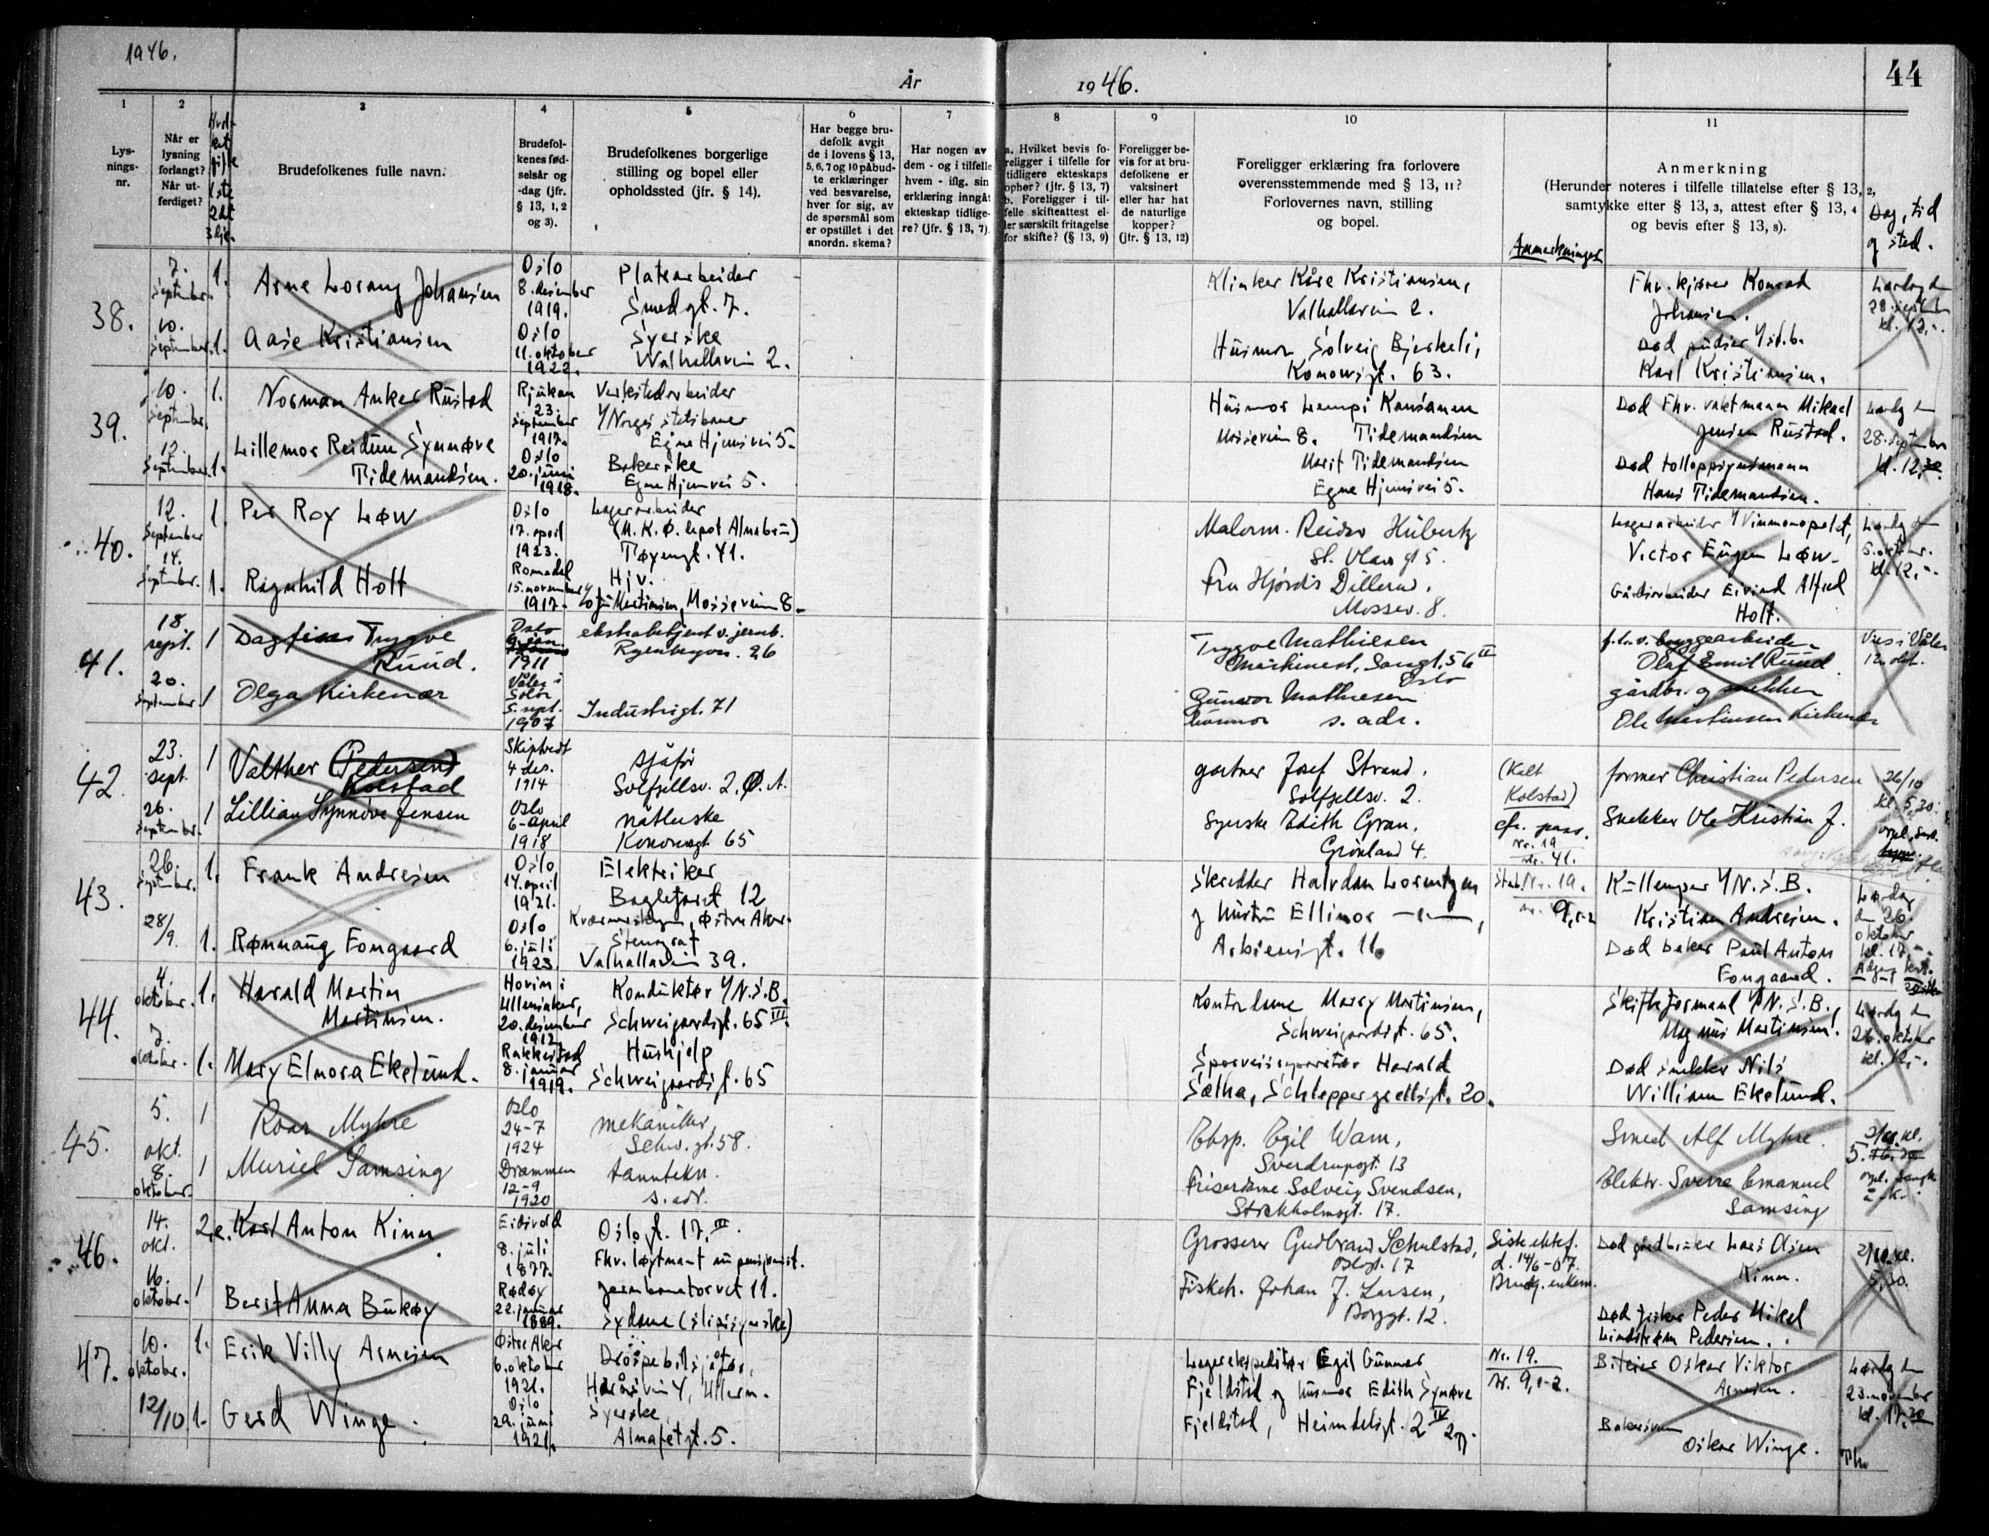 1946.
År
1946.
44
1
2
3
4
5
6
7
8
9
10
11
Lys-
nings-
nr.
Når er
lysning
forlangt?
Når ut-
ferdiget?
Brudefolkenes fulle navn.
Brudefol-
kenes fød-
selsår og
-dag (jfr.
§ 13, 1, 2
og 3).
Brudefolkenes borgerlige
stilling og bopel eller
opholdssted (jfr. § 14).
Har begge bru-
defolk avgit
de i lovens § 13,
5, 6, 7 og 10 påbud-
te erklæringer
ved besvarelse,
hver for sig, av
de spørsmål som
er opstillet i det
anordn. skema?
Har nogen av
dem - og i tilfelle
hvem - iflg. sin
erklæring inngåt
ekteskap tidlige-
re? (jfr. § 13, 7).
a. Hvilket bevis fo-
religger i tilfelle for
tidligere ekteskaps
ophør? (jfr. § 13, 7)
b. Foreligger i til-
felle skifteattest el-
ler særskilt fritagelse
for skifte? (§ 13, 9)
Foreligger be-
vis for at bru-
defolkene er
vaksinert
eller har hat
de naturlige
kopper?
(jfr. § 13, 12)
Foreligger erklæring fra forlovere
overensstemmende med § 13, 11?
Forlovernes navn, stilling
og bopel.
Anmerkninger
Anmerkning
(Herunder noteres i tilfelle tillatelse efter § 13, 2,
samtykke efter § 13, 3, attest efter § 13, 4
og bevis efter § 13, 8).
Dag, tid
og sted.
38.
7.
september
1.
Arne Lorang Johansen
Oslo
8. desember
1919.
Platearbeider
Smedgt. 7.
Klinker Kåre Kristiansen,
Valhallavein 2.
Fhv. kjører Konrad
Johansen.
Lørdag den
28. september
kl. 12,-.
10.
september
1.
Aase Kristiansen
Oslo
11. oktober
1922.
Syerske
Valhallavein 2.
Husmor Solveig Bjerkeli,
Konowsgt. 63.
Karl Kristiansen.
39.
10.
september
1.
Norman Anker Rustad
Rjukan
23.
september
1917.
Verkstedarbeider
v/Norges statsbaner
Egne Hjemsvei 5.
Mosseveien 8.
Død Fhv. vaktmann Mikael
Jensen Rustad.
Lørdag den
28. september
kl. 12,30
12.
september
1.
Lillemor Reidun Synnøve
Tidemandsen.
Oslo
20. juni
1918.
Bakerske
Egne Hjemsvei 5.
Marit Tidemandsen
Egne Hjemsvei 5.
Død tolloppsynsmann
Hans Tidemandsen.
40.
12.
September
1.
Per Roy Løw
Oslo
17. april
1923.
Lagerarbeider
(H.K.Ø. depot Alnabru)
Tøyengt. 41.
Malerm. Reidar Huberth
St. Olavs gt 5.
Lagerarbeider v/Vinmonopolet,
Victor Eugen Løw.
Lørdag den
5. oktober.
kl. 12,-.
14.
september.
1.
Ragnhild Holt
Romedal
15. november
1917.
Hjv.
Mosseveien 8.
Fru Hjørdis Dillerud,
Mossev. 8.
Gårdsarbeider Eivind Alfred
Holt.
41.
18
sept.
1
Dagfinn Trygve
Ruud.
Oslo
1911
ekstrabetjent v. jernb.
Ryenbergvn. 26
Trygve Mathiesen
Maskinest, Sørigt. 56 IV
Oslo
f.h.v. bryggearbeider
Olaf Emil Ruud
Vies i Våler
12. okt.
20.
september
1
Olga Kirkenær
Våler i
Solør
5. sept.
1907
Industrigt. 71
Gunvor Mathiesen
s. adr.
gårdbr. og snekker
Ole Martinsen Kirkenær
42.
23.
sept.
1
Valther Pedersen
Kolstad
Skiptvedt
4 des.
1914
sjåfør
Solfjellsv. 2. Ø.A.
gartner Josef Strand.
Solfjellsv. 2.
(Kalt
Kolstad)
cfr. pass.
former Christian Pedersen
26/10
kl. 5,30.
26.
september.
1
Lillian Synnøve Jensen
Oslo
6-April
1918
nåtlerske
Konowsgt 65
Syerske Edith Gran.
Grønland 4.
Nr. 19
nr. 41.
Snekker Ole Kristian J.
43.
26.
september.
1.
Frank Andresen
Oslo
14. april
1921.
Elektriker
Baglefaret 12
Kværnerbyen, Østre Aker.
Skredder Halvdan Lorentzen
og hustru Ellinor -"-,
Arbiensgt. 11.
Nr. 19.
9,1-2
Kullemper v/N.S.B.
Kristian Andresen.
Lørdag
den 26.
oktober
kl. 17,-.
28/9.
1.
Rønnaug Fongaard
Oslo
6. juli
1923
Stenograf
Valhallavein 39.
Død baker Paul Anton
Fongaard.
44.
4.
oktober.
1.
Harald Martin
Martinsen.
Hovin i
Ullensaker,
20. desember
1912
Konduktør v/N.S.B.
Schweigaardsgt. 65 III.
Kontordame Mary Martinsen,
Schweigaardsgt. 65.
Skifteformann v/N.S.B.,
Magnus Martinsen.
Lørdag den
26. oktober
kl. 12,-.
7.
oktober.
1.
Mary Elnora Ekelund.
Rakkestad
8. januar
1919.
Hushjelp
Schweigaardsgt. 65
Sporveisreparatør Harald
Sætha, Schleppegrellsgt. 20.
Død snekker Nils
William Ekelund.
45.
5.
okt.
1
Roar Myhre
Oslo
24-7
1924
mekaniker,
Schw. gt. 58.
Eksp. Egil Wam,
Sverdrupsgt. 13
Smed Alf Myhre.
8.
oktober.
1
Muriel Samsing
Drammen
12-9
1920
tanntekn.
s. adr.
Friserdame Solveig Svendsen,
Stockholmsgt. 17.
Elektr. Sverre Emanuel
Samsing
46.
14.
okt.
2.e.
Karl Anton Kinn.
Eidsvold
8. juli
1877.
Oslogt. 17. III.
Fhv. løytnant nu pensjonist.
Grosserer Gudbrand Schulstad,
Oslogt. 17
Siste ektef.
d. 14/6-07.
Brudg. enkem.
Død gårdbruker Lars Olsen
Kinn.
5,30.
16.
oktober.
1
Berit Anna Bukøy
Rødøy
22. januar
1889.
Jernbanetorvet 11.
Sydame (slipssyerske)
Fiskeh. Johan J. Larsen,
Borggt. 12.
Død fisker Peder Mikal
Lindstrøm Pedersen.
47.
10.
oktober.
1.
Erik Villy Arnesen
Østre Aker
6. oktober
1921.
Drosjebilsjåfør,
Lagerekspeditør Egil Gunnar
Fjeldstad og husmor Edith Synøve
Fjeldstad, Heimdalsgt. 2 IV
Nr. 19.
Nr. 9,1-2.
Oskar Viktor
Arnesen.
Lørdag den
23. november
kl. 17,30
12/10
1.
Gerd Winge.
Oslo
29. juni
1921.
Syerske
Almafetgt. 5.
Oskar Winge.